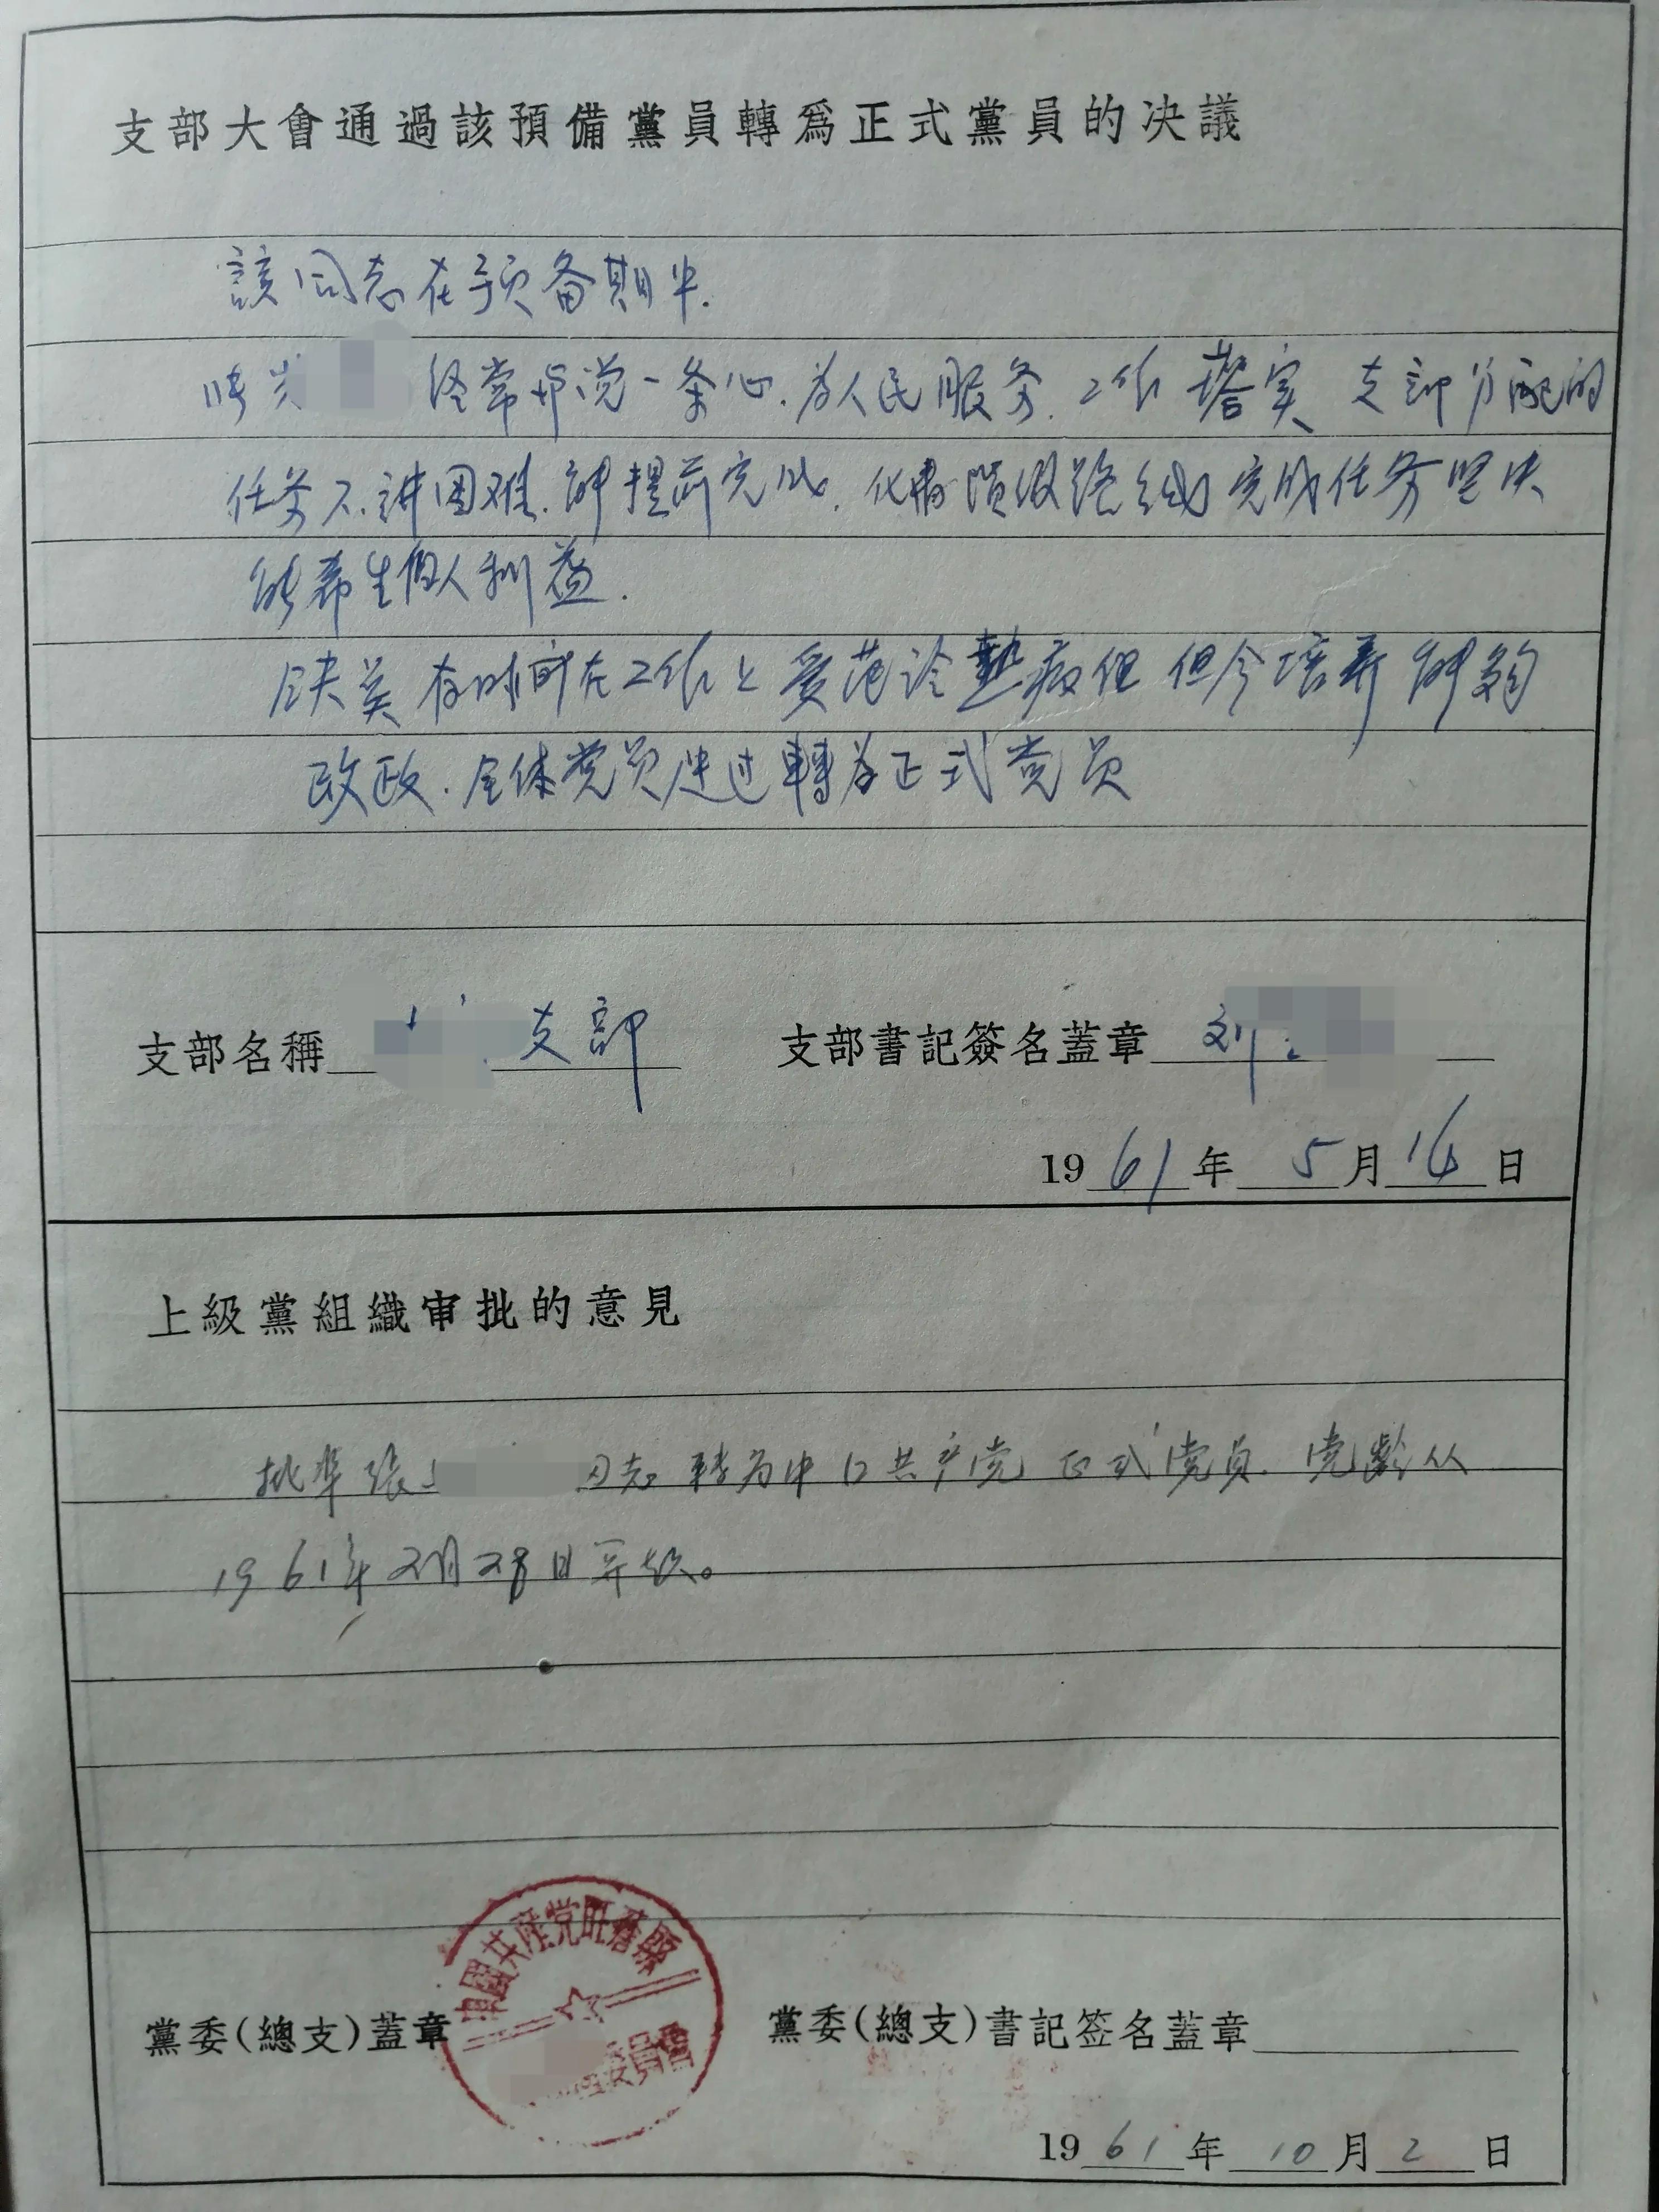 支部大會通過該預備黨員轉爲正式黨員的决議
該同志在预备期中.
经常与党一条心.为人民服务.工作 塔实 支部分配的
任务不讲困难.能提前完成. 路线 完成任务坚决
能希生個人利益.
缺 有时间在工作上 爱范冷热病但 但今培养 能夠
改正.全体党员通过轉为正式党员
支部名稱 支部 支部書記簽名蓋章 刘
1961年5月14日
上級黨組織审批的意見
批準張 同志 轉为中囗共产党 正式党员. 党齡从
1961年2月28日算起。
中國共產党旺蒼縣
委員會
黨委(總支)蓋章 黨委(總支)書記签名蓋章
1961年10月2日